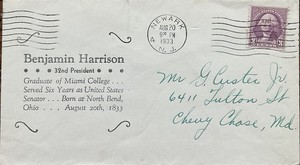 NEWARK
AUG 20
9 PM
1933
N. J.
Benjamin Harrison
32nd President
Graduate of Miami College...
Served Six Years as United States
Senator... Born at North Bend,
Ohio... August 20th, 1833
Mr G. Custer Jr.
6411 Fulton St
Chevy Chase, Md